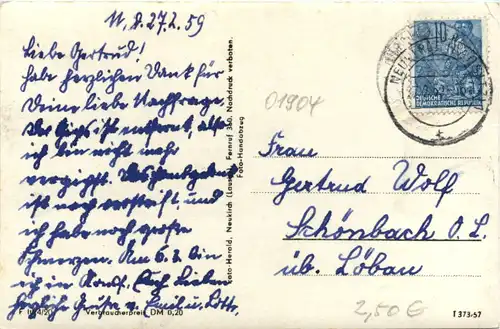 N, d. 27.2.59
Liebe Gertrud!
habe herzlichen Dank für
Deine liebe Nachfrage.
Der Gips ist entfernt, also
ich bin nicht mehr
vergipst. Das Handgelenk
ist noch versteift, und
ich habe noch große
Schmerzen. Am 6.3. bin
ich in Euch Lieben
herzliche Grüße v. Emil u. Lotte
F 1044/20 Verbraucherpreis DM 0,20
Foto-Herold, Neukirch (Lausitz), Fernruf 360. Nachdruck verboten.
Foto-Handabzug
01904
10
DEUTSCHE
DEMOKRATISCHE REPUBLIK
Frau
Gertrud Wolf
Schönbach O.L.
üb. Löbau
2,50 €
T 373-57